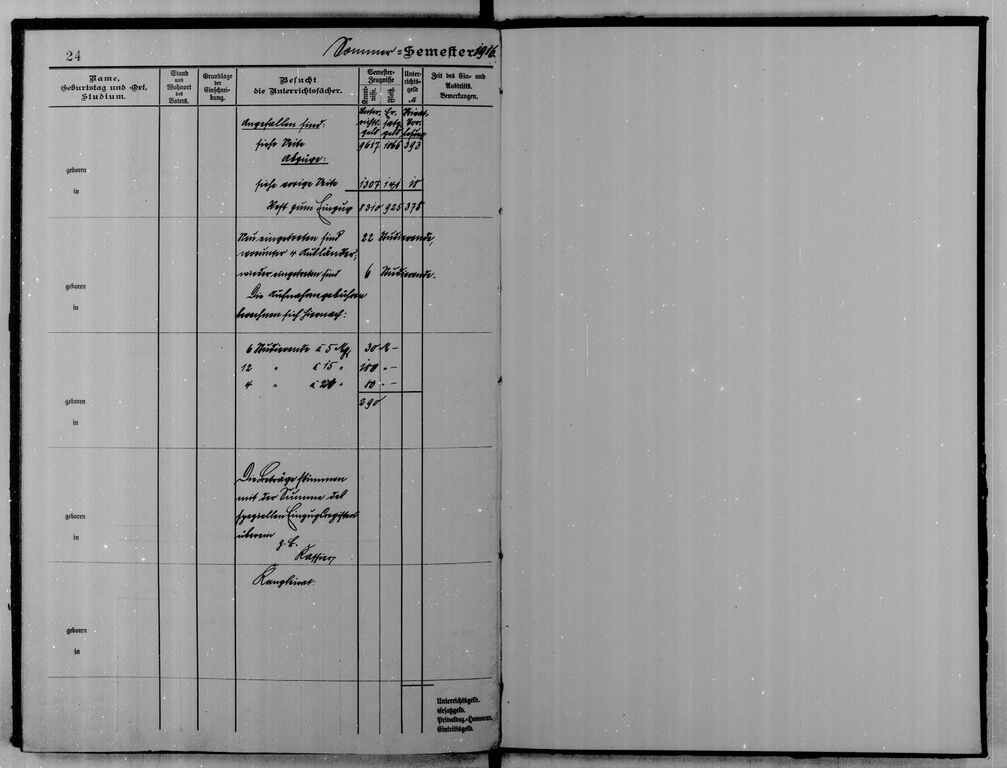 24
Sommer-Semester 1916.
Name, Geburtstag und -Ort, Studium.
Stand und Wohnort des Vaters.
Grundlage der Einschreibung.
Besucht die Unterrichtsfächer.
Semester-Zeugnisse
Kenntnisse.
Fleiß.
Unterrichtsgeld
M
Zeit des Ein- und Austritts. Bemerkungen.
Angefallen sind: Unterrichtsgeld Ersatzgeld Privat-Vorlesung
siehe Seite 9617 1066 393
Abzüge:
geboren
siehe vorige Seite 1307 141 18
in
Rest zum Einzug 8310 925 375
Neu eingetreten sind 22 Studierende,
worunter 4 Ausländer,
wieder eingetreten sind 6 Studierende.
geboren
Die Aufnahmegebühren
in
berechnen sich hiernach:
6 Studierende à 5 M, 30 M -
12 " à 15 " 180 " -
4 " à 20 " 80 " -
geboren
290
in
Die Beträge stimmen
mit der Summe des
geboren
speziellen Einzugsregisters
überein
in
z. B.
Kassier,
Kanzleirat.
geboren
in
Unterrichtsgeld.
Ersatzgeld.
Privatdoz.-Honorar.
Eintrittsgeld.